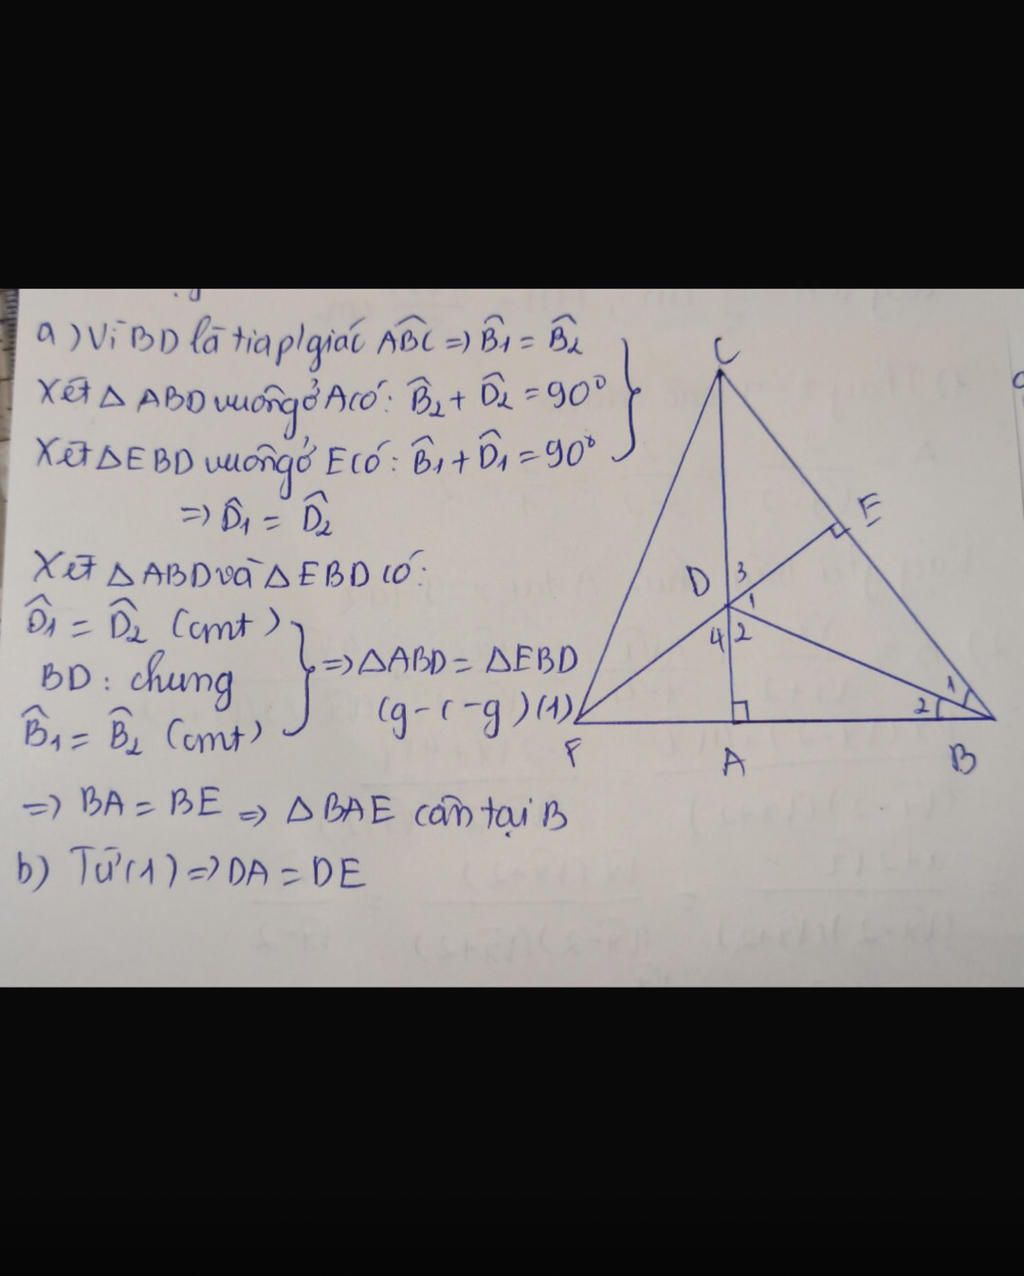 a) Vì BD là tia p/giác ABĈ => B̂1 = B̂2
Xét △ ABD vuông ở A có: B̂2 + D̂2 = 90°
Xét △ EBD vuông ở E có: B̂1 + D̂1 = 90°
=> D̂1 = D̂2
Xét △ ABD và △ EBD có:
D̂1 = D̂2 (cmt)
BD : chung
B̂1 = B̂2 (cmt)
=> △ ABD = △ EBD
(g-c-g) (1)
=> BA = BE => △ BAE cân tại B
b) Từ (1) => DA = DE
C
E
D 3
1
4 2
1
2
F
A
B